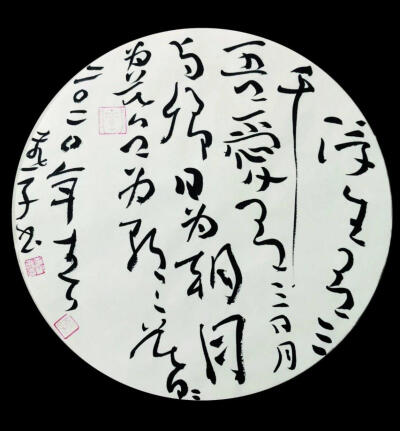 浮生有三
千
吾愛有三日月
与卿日为朝月
为暮卿为朝〻暮〻
二〇二〇年
子书